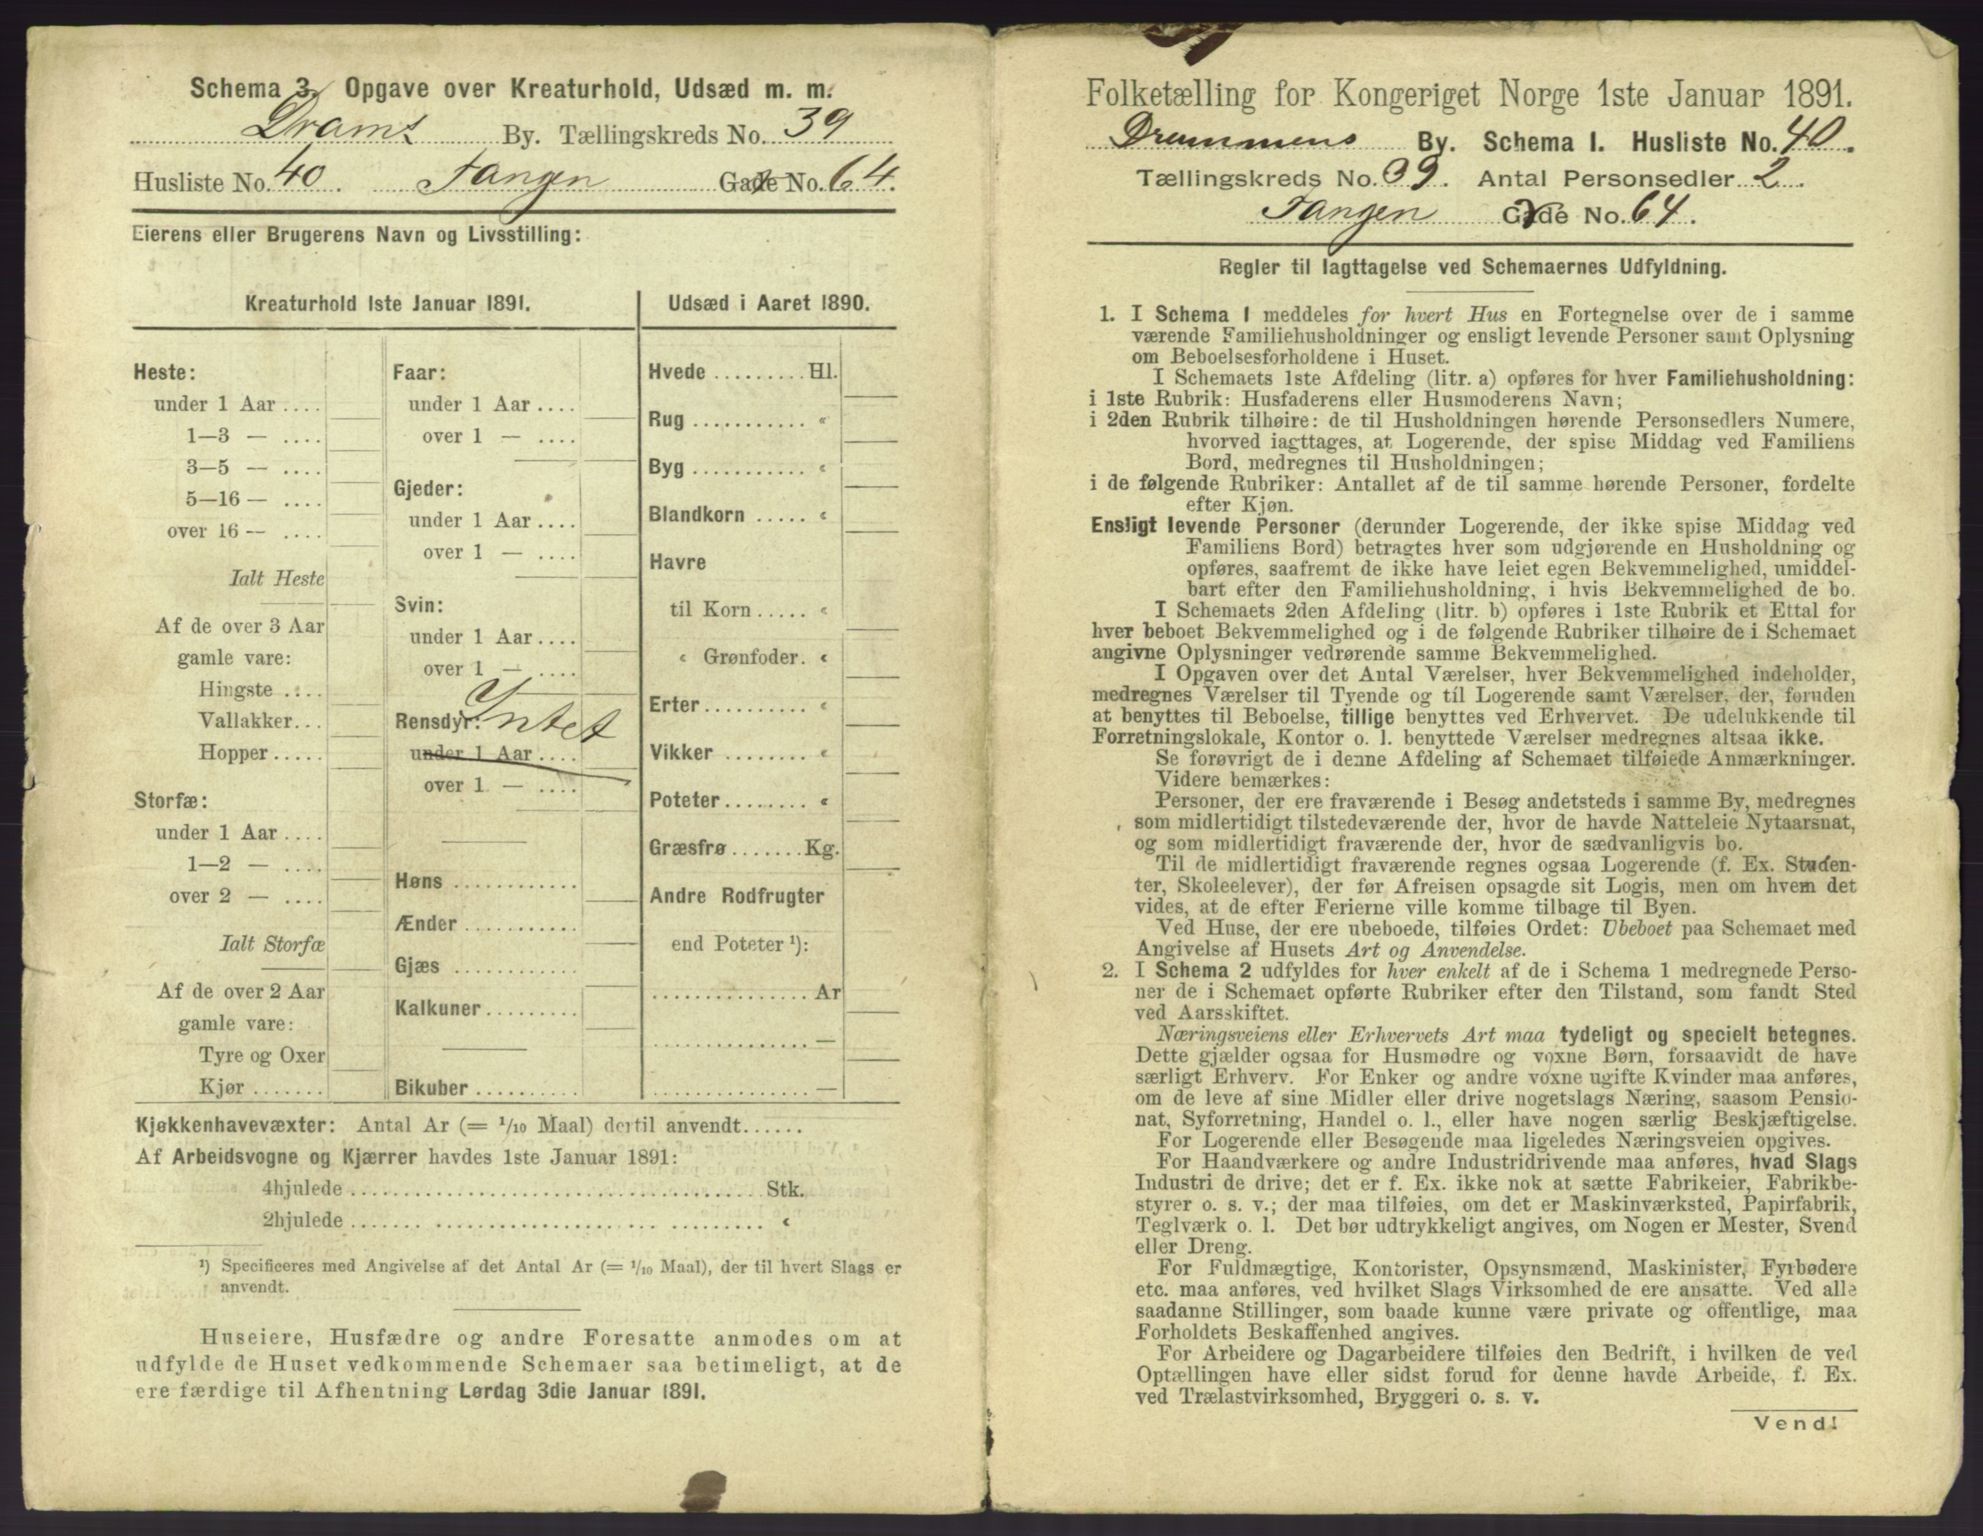 Schema 3. Opgave over Kreaturhold, Udsæd m. m.
Drams By. Tællingskreds No. 39
Husliste No. 40. Tangen Gade No. 64.
Eierens eller Brugerens Navn og Livsstilling:
Kreaturhold 1ste Januar 1891.
Heste:
under 1 Aar ....
1—3 — ....
3—5 — ....
5—16 — ....
over 16 — ....
Ialt Heste
Af de over 3 Aar
gamle vare:
Hingste ....
Vallakker...
Hopper.....
Storfæ:
under 1 Aar ....
1—2 — ....
over 2 — ....
Ialt Storfæ
Af de over 2 Aar
gamle vare:
Tyre og Oxer
Kjør .......
Faar:
under 1 Aar ....
over 1 — ....
Gjeder:
under 1 Aar ....
over 1 — ....
Svin:
under 1 Aar ....
over 1 — ....
Rensdyr: Intet
under 1 Aar ....
over 1 — ....
Høns ............
Ænder ...........
Gjæs ............
Kalkuner .........
Bikuber ..........
Udsæd i Aaret 1890.
Hvede ......... Hl.
Rug ........... «
Byg ........... «
Blandkorn ..... «
Havre
til Korn ..... «
« Grønfoder. «
Erter ......... «
Vikker ........ «
Poteter ........ «
Græsfrø ....... Kg.
Andre Rodfrugter
end Poteter ¹):
............... Ar
............... —
............... —
Kjøkkenhavevæxter: Antal Ar (= 1/10 Maal) dertil anvendt......
Af Arbeidsvogne og Kjærrer havdes 1ste Januar 1891:
4hjulede ........................................ Stk.
2hjulede ........................................ «
¹) Specificeres med Angivelse af det Antal Ar (= 1/10 Maal), der til hvert Slags er
anvendt.
Huseiere, Husfædre og andre Foresatte anmodes om at
udfylde de Huset vedkommende Schemaer saa betimeligt, at de
ere færdige til Afhentning Lørdag 3die Januar 1891.
Folketælling for Kongeriget Norge 1ste Januar 1891.
Drammens By. Schema I. Husliste No. 40.
Tællingskreds No. 39. Antal Personsedler 2.
Tangen Gade No. 64.
Regler til Iagttagelse ved Schemaernes Udfyldning.
1. I Schema 1 meddeles for hvert Hus en Fortegnelse over de i samme
værende Familiehusholdninger og ensligt levende Personer samt Oplysning
om Beboelsesforholdene i Huset.
I Schemaets 1ste Afdeling (litr. a) opføres for hver Familiehusholdning:
i 1ste Rubrik: Husfaderens eller Husmoderens Navn;
i 2den Rubrik tilhøire: de til Husholdningen hørende Personsedlers Numere,
hvorved iagttages, at Logerende, der spise Middag ved Familiens
Bord, medregnes til Husholdningen;
i de følgende Rubriker: Antallet af de til samme hørende Personer, fordelte
efter Kjøn.
Ensligt levende Personer (derunder Logerende, der ikke spise Middag ved
Familiens Bord) betragtes hver som udgjørende en Husholdning og
opføres, saafremt de ikke have leiet egen Bekvemmelighed, umiddel-
bart efter den Familiehusholdning, i hvis Bekvemmelighed de bo.
I Schemaets 2den Afdeling (litr. b) opføres i 1ste Rubrik et Ettal for
hver beboet Bekvemmelighed og i de følgende Rubriker tilhøire de i Schemaet
angivne Oplysninger vedrørende samme Bekvemmelighed.
I Opgaven over det Antal Værelser, hver Bekvemmelighed indeholder,
medregnes Værelser til Tyende og til Logerende samt Værelser, der, foruden
at benyttes til Beboelse, tillige benyttes ved Erhvervet. De udelukkende til
Forretningslokale, Kontor o. l. benyttede Værelser medregnes altsaa ikke.
Se forøvrigt de i denne Afdeling af Schemaet tilføiede Anmærkninger.
Videre bemærkes:
Personer, der ere fraværende i Besøg andetsteds i samme By, medregnes
som midlertidigt tilstedeværende der, hvor de havde Natteleie Nytaarsnat,
og som midlertidigt fraværende der, hvor de sædvanligvis bo.
Til de midlertidigt fraværende regnes ogsaa Logerende (f. Ex. Studen-
ter, Skoleelever), der før Afreisen opsagde sit Logis, men om hvem det
vides, at de efter Ferierne ville komme tilbage til Byen.
Ved Huse, der ere ubeboede, tilføies Ordet: Ubeboet paa Schemaet med
Angivelse af Husets Art og Anvendelse.
2. I Schema 2 udfyldes for hver enkelt af de i Schema 1 medregnede Perso-
ner de i Schemaet opførte Rubriker efter den Tilstand, som fandt Sted
ved Aarsskiftet.
Næringsveiens eller Erhvervets Art maa tydeligt og specielt betegnes.
Dette gjælder ogsaa for Husmødre og voxne Børn, forsaavidt de have
særligt Erhverv. For Enker og andre voxne ugifte Kvinder maa anføres,
om de leve af sine Midler eller drive nogetslags Næring, saasom Pensio-
nat, Syforretning, Handel o. l., eller have nogen særlig Beskjæftigelse.
For Logerende eller Besøgende maa ligeledes Næringsveien opgives.
For Haandværkere og andre Industridrivende maa anføres, hvad Slags
Industri de drive; det er f. Ex. ikke nok at sætte Fabrikeier, Fabrikbe-
styrer o. s. v.; der maa tilføies, om det er Maskinværksted, Papirfabrik,
Teglværk o. l. Det bør udtrykkeligt angives, om Nogen er Mester, Svend
eller Dreng.
For Fuldmægtige, Kontorister, Opsynsmænd, Maskinister, Fyrbødere
etc. maa anføres, ved hvilket Slags Virksomhed de ere ansatte. Ved alle
saadanne Stillinger, som baade kunne være private og offentlige, maa
Forholdets Beskaffenhed angives.
For Arbeidere og Dagarbeidere tilføies den Bedrift, i hvilken de ved
Optællingen have eller sidst forud for denne havde Arbeide, f. Ex.
ved Trælastvirksomhed, Bryggeri o. s. v.
Vend!